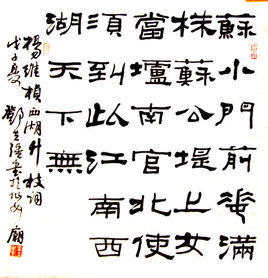 蘇小門前花滿
株蘇公堤上女
當壚南官北使
須到此江南西
湖天下無
楊維楨西湖竹枝詞
戊子夏鄧書於廟